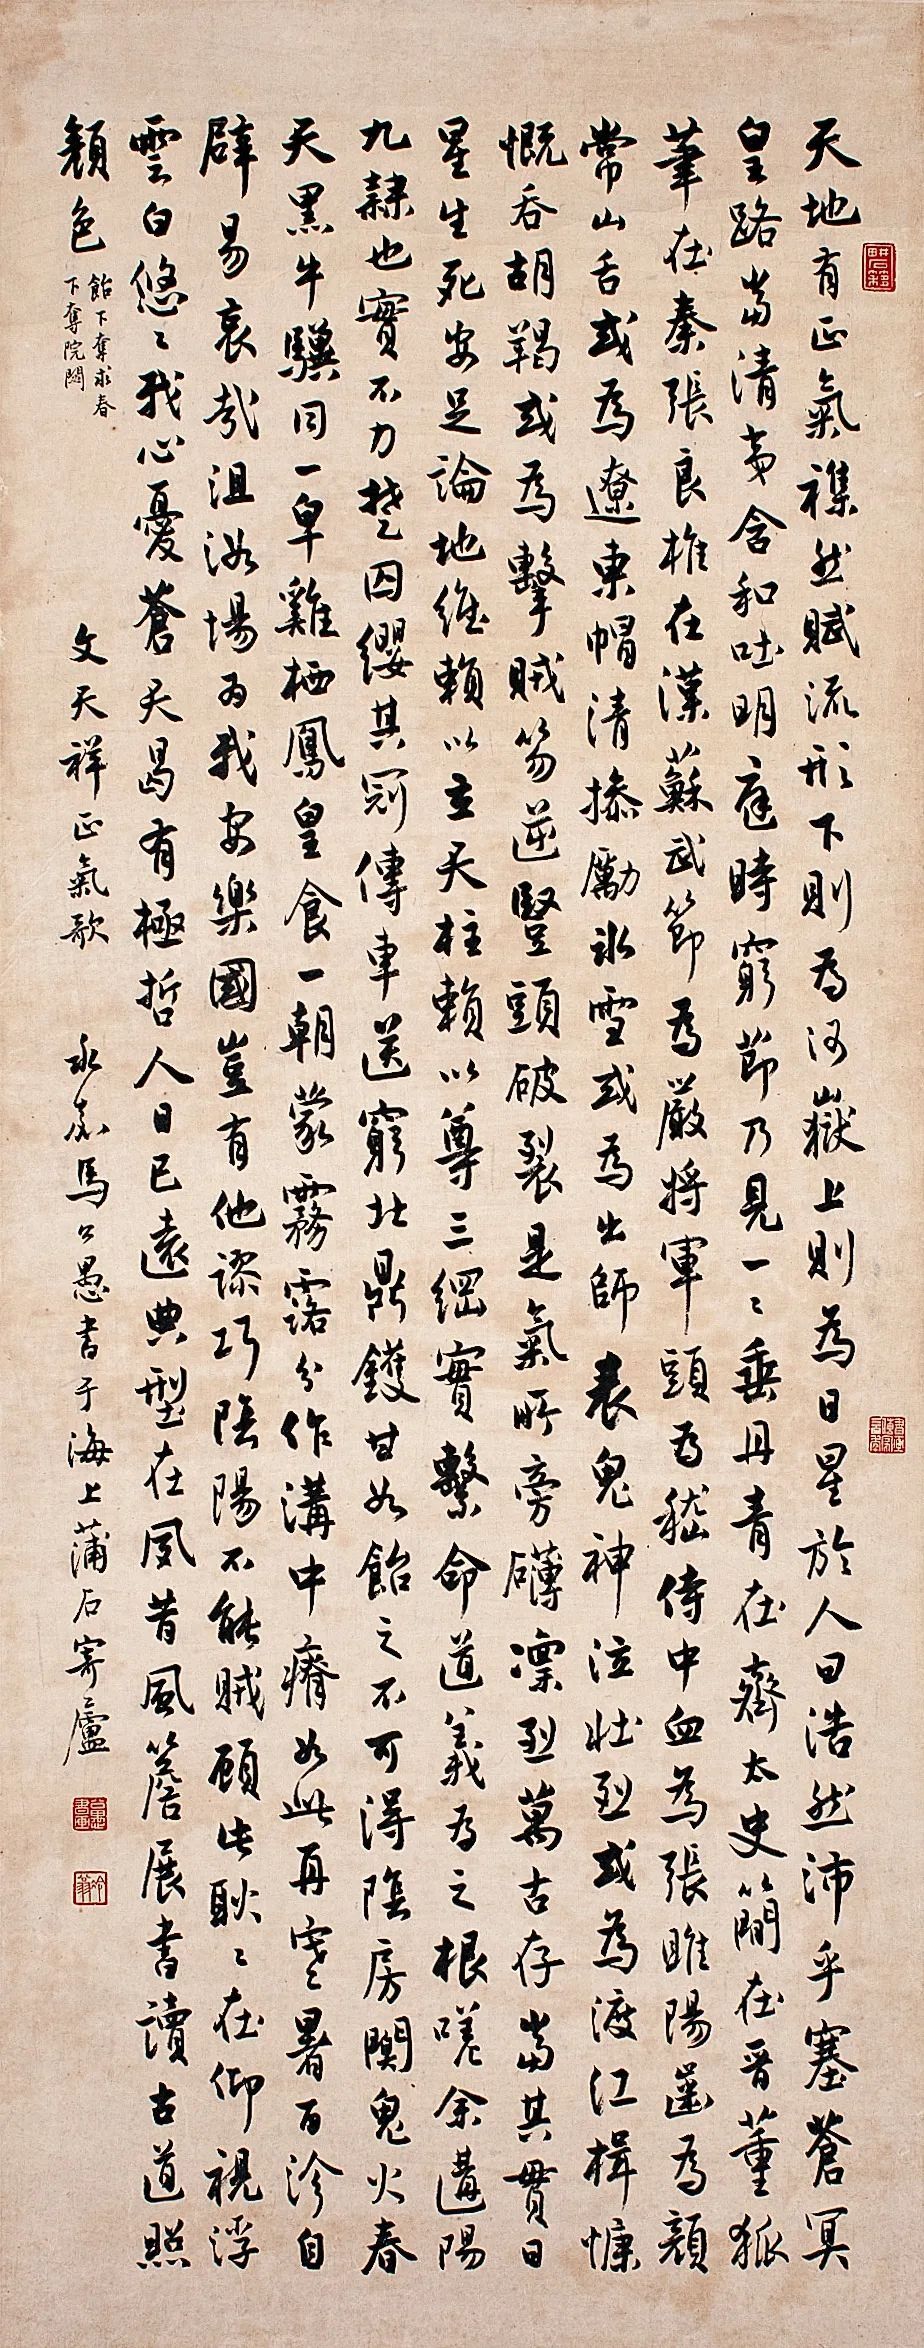 天地有正氣襍然賦流形下則為河嶽上則為日星於人曰浩然沛乎塞蒼冥
皇路當清夷含和吐明庭時窮節乃見一々垂丹青在齊太史簡在晉董狐
筆在秦張良椎在漢蘇武節為嚴將軍頭為嵇侍中血為張睢陽齒為顏
常山舌或為遼東帽清操勵冰雪或為出師表鬼神泣壯烈或為渡江楫慷
慨吞胡羯或為擊賊笏逆豎頭破裂是氣所旁礴凜烈萬古存當其貫日
星生死安足論地維賴以立天柱賴以尊三綱實繫命道義為之根嗟余遘陽
九隸也實不力楚囚纓其冠傳車送窮北鼎鑊甘如飴之不可得陰房闃鬼火春
天黑牛驥同一皁雞栖鳳皇食一朝蒙霧露分作溝中瘠如此再寒暑百沴自
辟易哀哉沮洳場為我安樂國豈有他謬巧陰陽不能賊顧此耿々在仰視浮
雲白悠々我心憂蒼天曷有極哲人日已遠典型在夙昔風簷展書讀古道照
顏色
飴下奪求春
下奪院闃
文天祥正氣歌 永嘉馬公愚書于海上蒲石寄廬